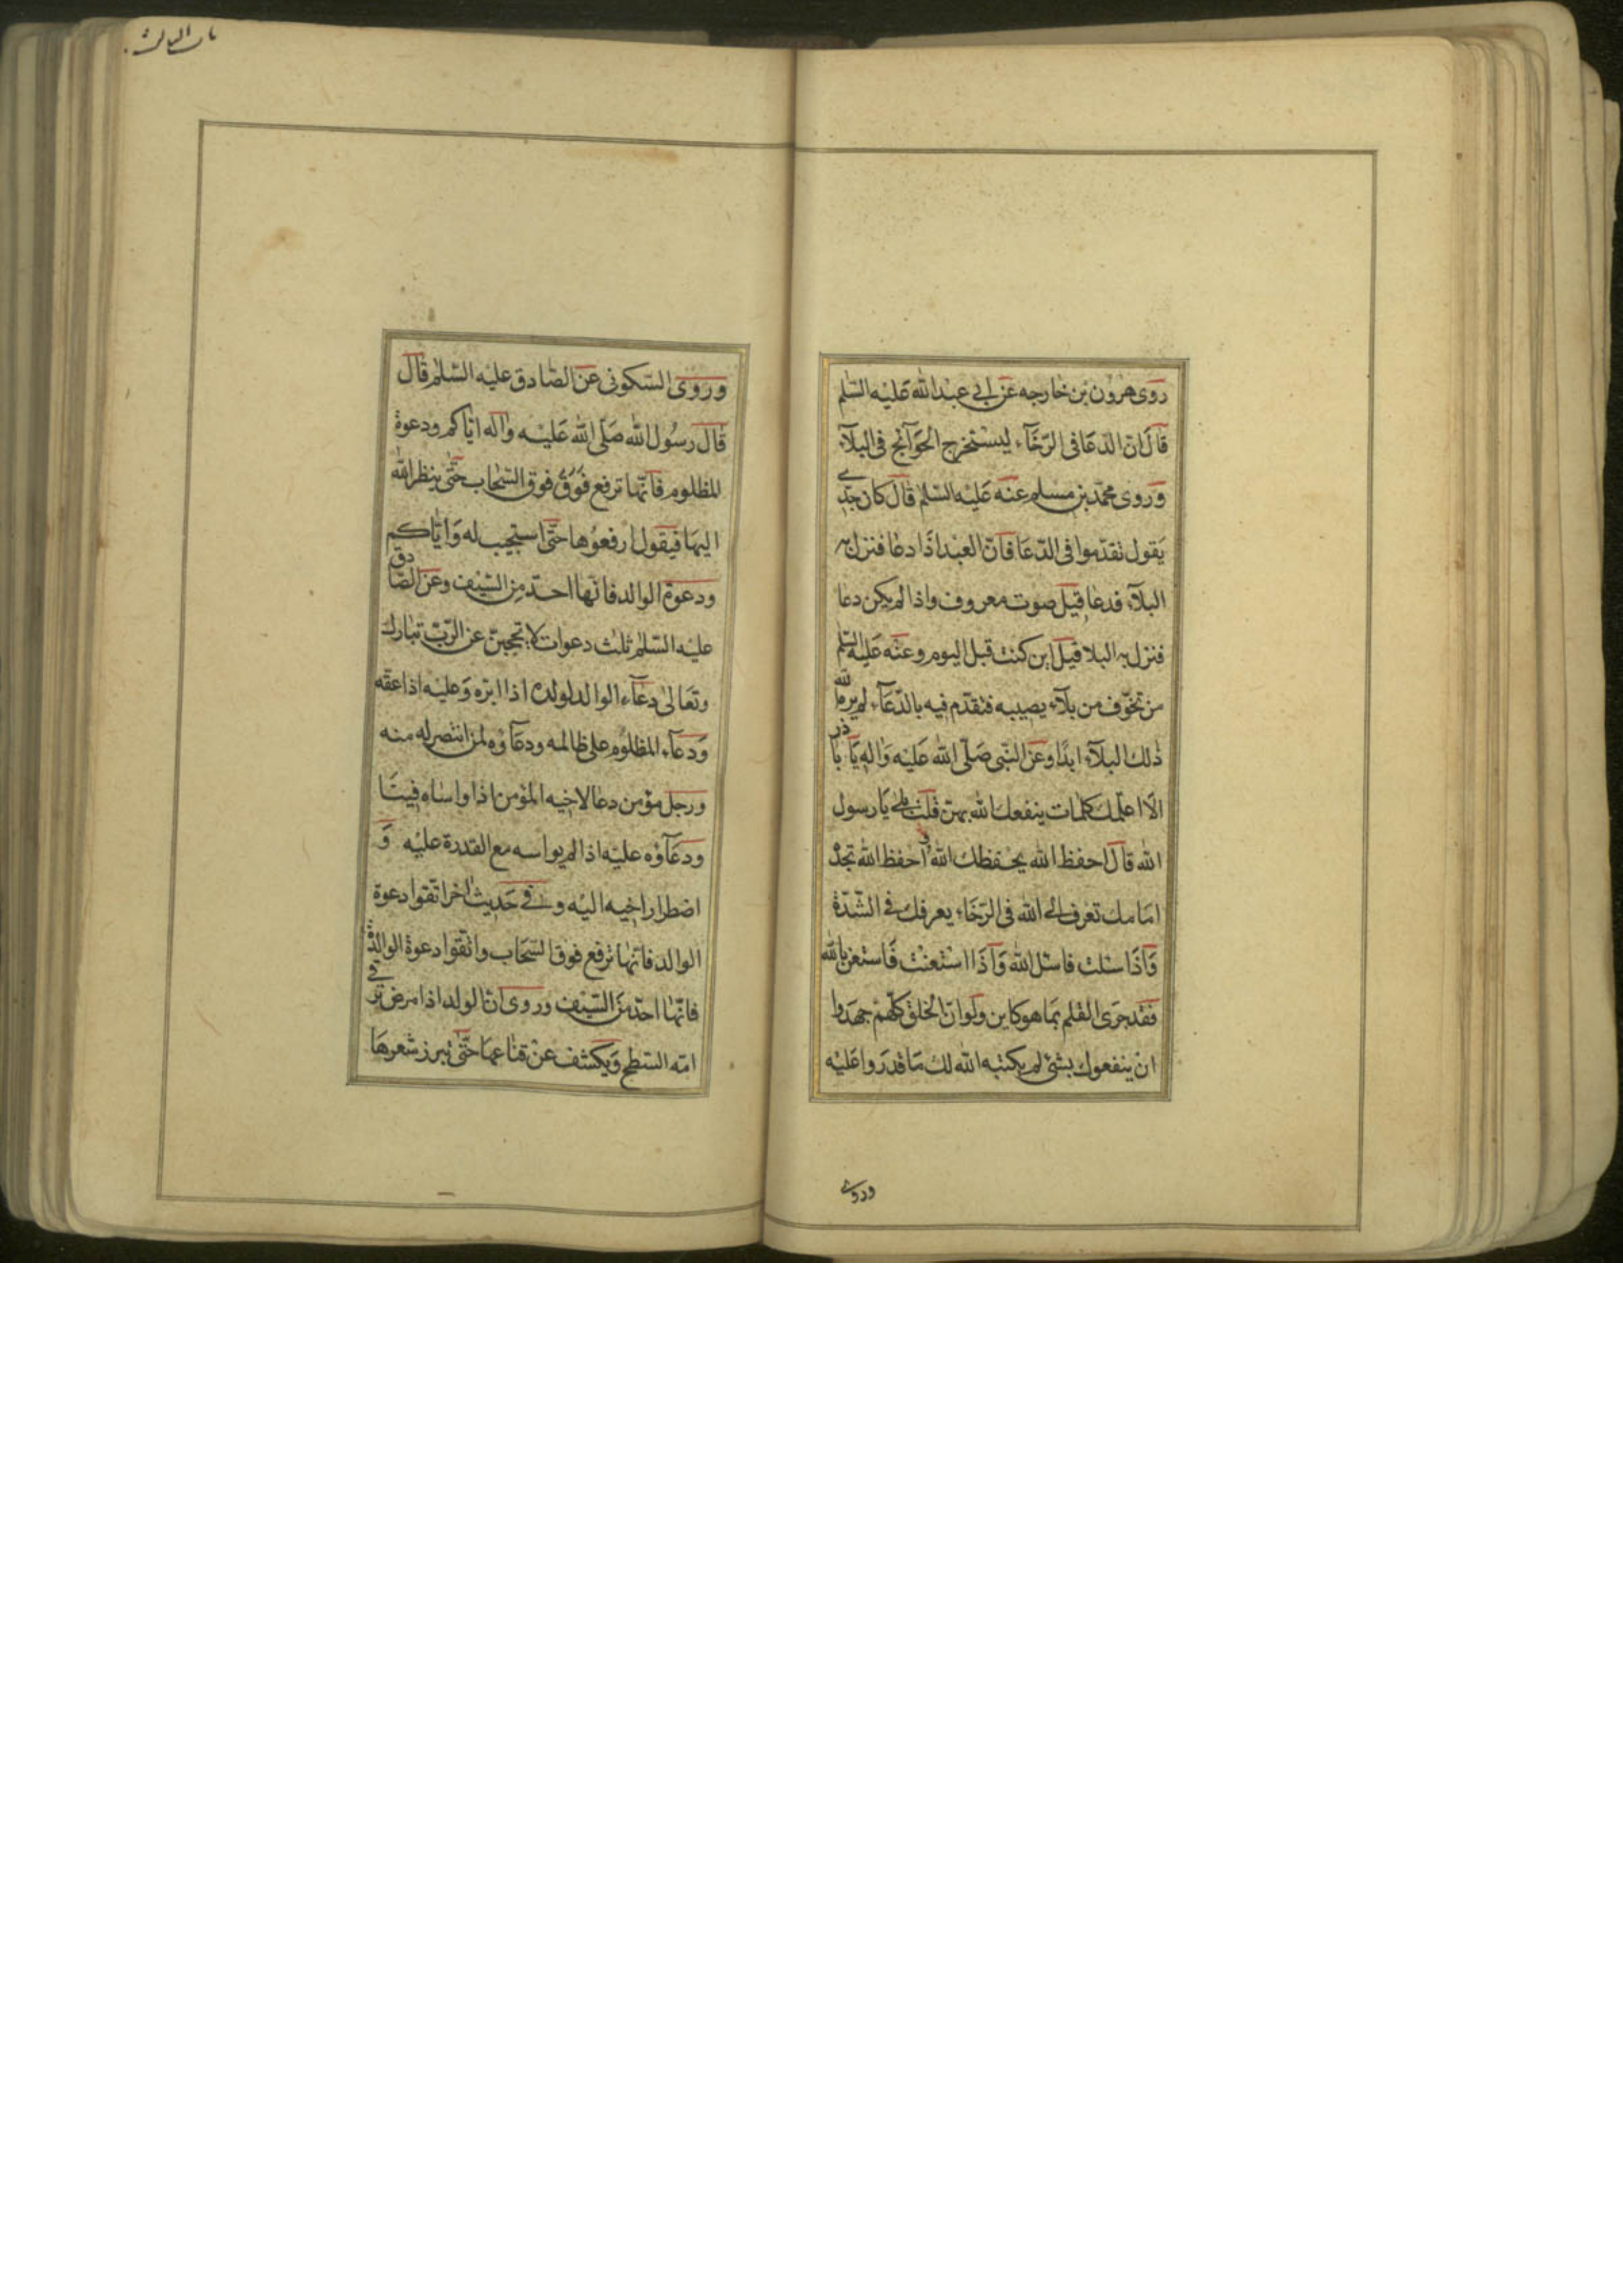 روى هرون بن خارجه عن ابي عبد الله عليه السلم
قال ان الدعا في الرخآء ليستخرج الحوآئج في البلآء
وروى محمد بن مسلم عنه عليه السلم قال كان جدي
يقول تقدموا في الدعا فان العبد اذا دعا فنزل به
البلآء فدعا قيل صوت معروف واذا لم يكن دعا
فنزل به البلا قيل اين كنت قبل اليوم وعنه عليه السلم
من تخوف من بلآء يصيبه فتقدم فيه بالدعآء لم يره الله
ذلك البلآء ابدا وعن النبي صلى الله عليه واله يا باذر
الا اعلمك كلمات ينفعك الله بهن قلت بلى يا رسول
الله قال احفظ الله يحفظك الله احفظ الله تجده
امامك تعرف الى الله في الرخاء يعرفك في الشدة
واذا سئلت فاسئل الله واذا استعنت فاستعن بالله
فقد جرى القلم بما هو كاين ولو ان الخلق كلهم جهدوا
ان ينفعوك بشئ لم يكتبه الله لك ما قدروا عليه
وروى
وروى السكوني عن الصادق عليه السلم قال
قال رسول الله صلى الله عليه واله اياكم ودعوة
المظلوم فانها ترفع فوق السحاب حتى ينظر الله
اليها فيقول ارفعوها حتى استجيب له واياكم
ودعوة الوالد فانها احد من السيف وعن الصادق
عليه السلم ثلث دعوات لا تحجبن عن الرب تبارك
وتعالى دعآء الوالد لولده اذا ابره وعليه اذا عقه
ودعآء المظلوم على ظالمه ودعآؤه لمن انتصر له منه
ورجل مؤمن دعا لاخيه المؤمن اذا واساه فينا
ودعآؤه عليه اذا لم يواسه مع القدرة عليه و
اضطرار اخيه اليه وفي حديث اخر اتقوا دعوة
الوالد فانها ترفع فوق السحاب واتقوا دعوة الوالدة
فانها احد من السيف وروى ان الولد اذا مرض ترقى
امه السطح ويكشف عن قناعها حتى تبرز شعرها